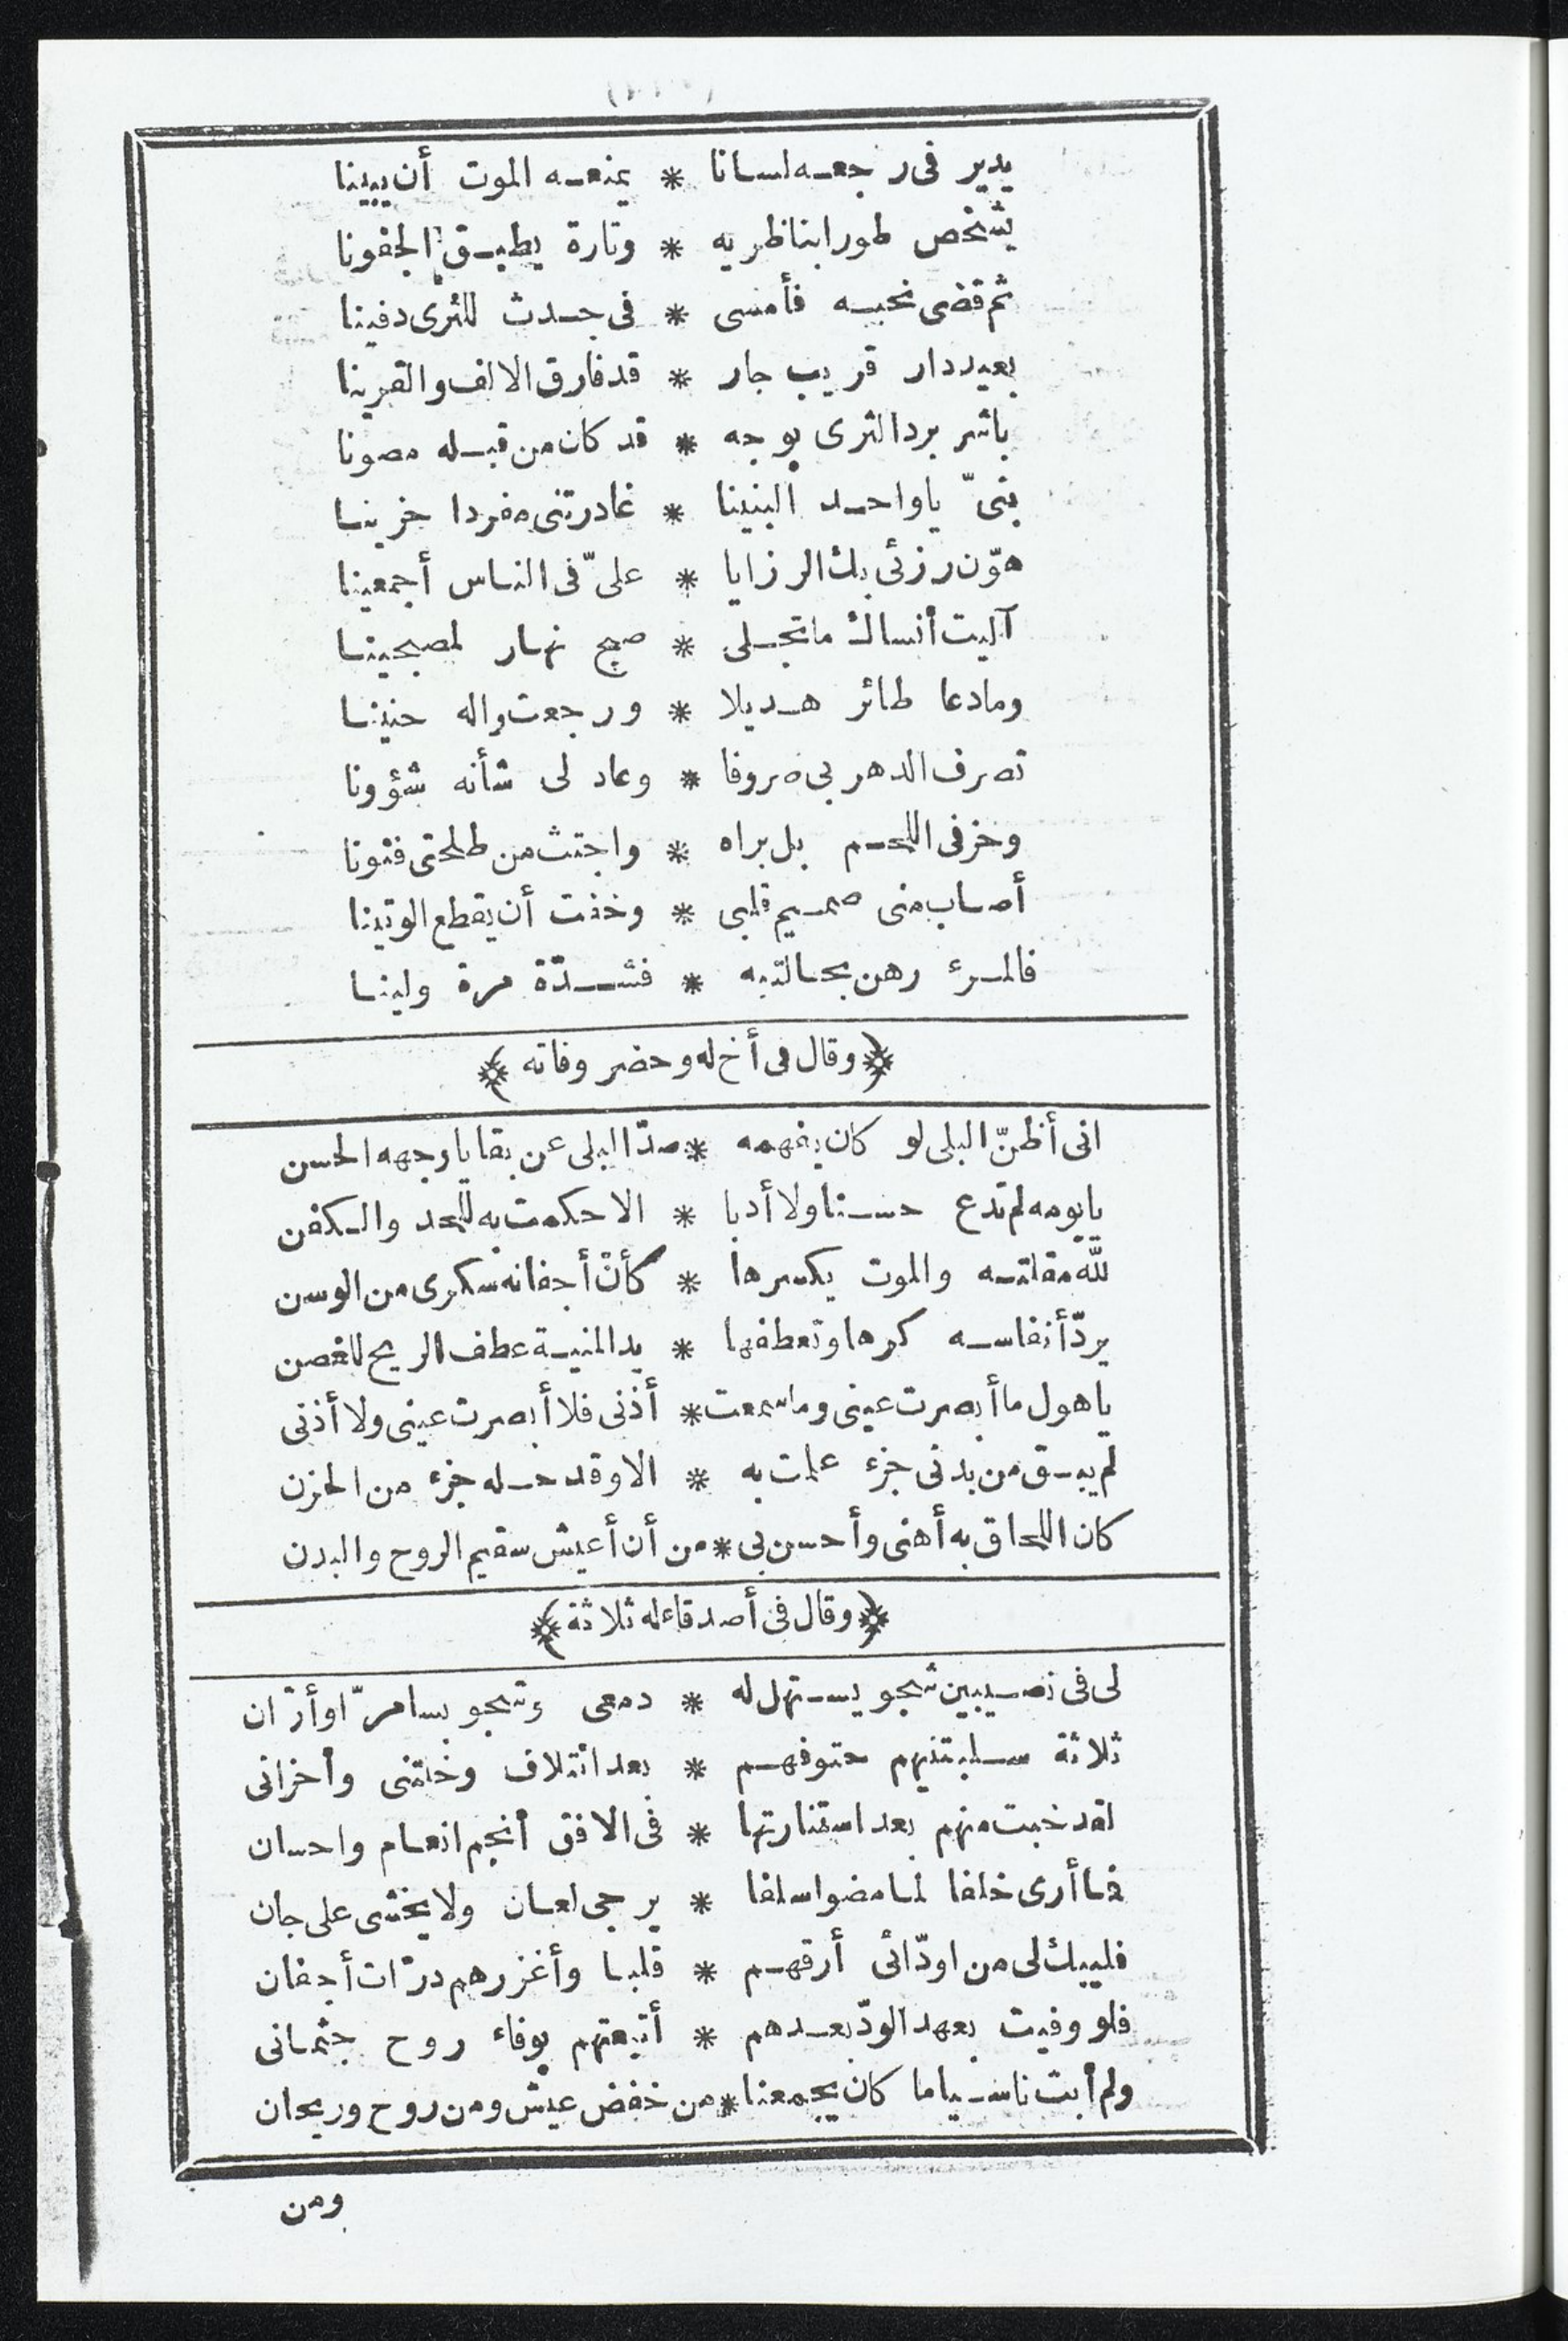 يدير فى رجعه لسانا * يمنعه الموت أن يبينا
يشخص طورا بناظريه * وتارة يطبق الجفونا
ثم قضى نحبه فأمسى * فى جدث للثرى دفينا
بعيد دار قريب جار * قد فارق الالف والقرينا
باشر برد الثرى بوجه * قد كان من قبله مصونا
بنىّ يا واحد البنينا * غادرتنى مفردا حزينا
هوّن رزئى بك الرزايا * علىّ فى الناس أجمعينا
آليت أنساك ما تجلى * صبح نهار لمصبحينا
وما دعا طائر هديلا * ورجعت واله حنينا
تصرف الدهر بى صروفا * وعاد لى شأنه شؤونا
وحز فى اللحم بل براه * واجتث من طلحتى فنونا
أصاب منى صميم قلبى * وخفت أن يقطع الوتينا
فالمرء رهن بحالتيه * فشدّة مرة ولينا
﴿وقال فى أخ له وحضر وفاته﴾
انى أظنّ البلى لو كان يفهمه * صدّ البلى عن بقايا وجهه الحسن
يا يومه لم تدع حسنا ولا أدبا * الا حكمت به للحد والكفن
لله مقلته والموت يكسرها * كأنّ أجفانه سكرى من الوسن
يردّ أنفاسه كرها وتعطفها * يد المنية عطف الريح للغصن
يا هول ما أبصرت عينى وما سمعت * أذنى فلا أبصرت عينى ولا أذنى
لم يبق من بدنى جزء علمت به * الا وقد حله جزء من الحزن
كان اللحاق به أهنى وأحسن بى * من أن أعيش سقيم الروح والبدن
﴿وقال فى أصدقاء له ثلاثة﴾
لى فى نصيبين شجو يستهل له * دمعى وشجو بسامرّا وأرّان
ثلاثة سلبتنيهم حتوفهم * بعد ائتلاف وخلتنى وأحزانى
لقد خبت منهم بعد استنارتها * فى الافق أنجم انعام واحسان
فما أرى خلفا لما مضوا سلفا * يرجى لعان ولا يخشى على جان
فليبك لى من اودّائى أرقهم * قلبا وأغزرهم درّات أجفان
فلو وفيت بعهد الودّ بعدهم * أتبعتهم بوفاء روح جثمانى
ولم أبت ناسيا ما كان يجمعنا * من خفض عيش ومن روح وريحان
ومن